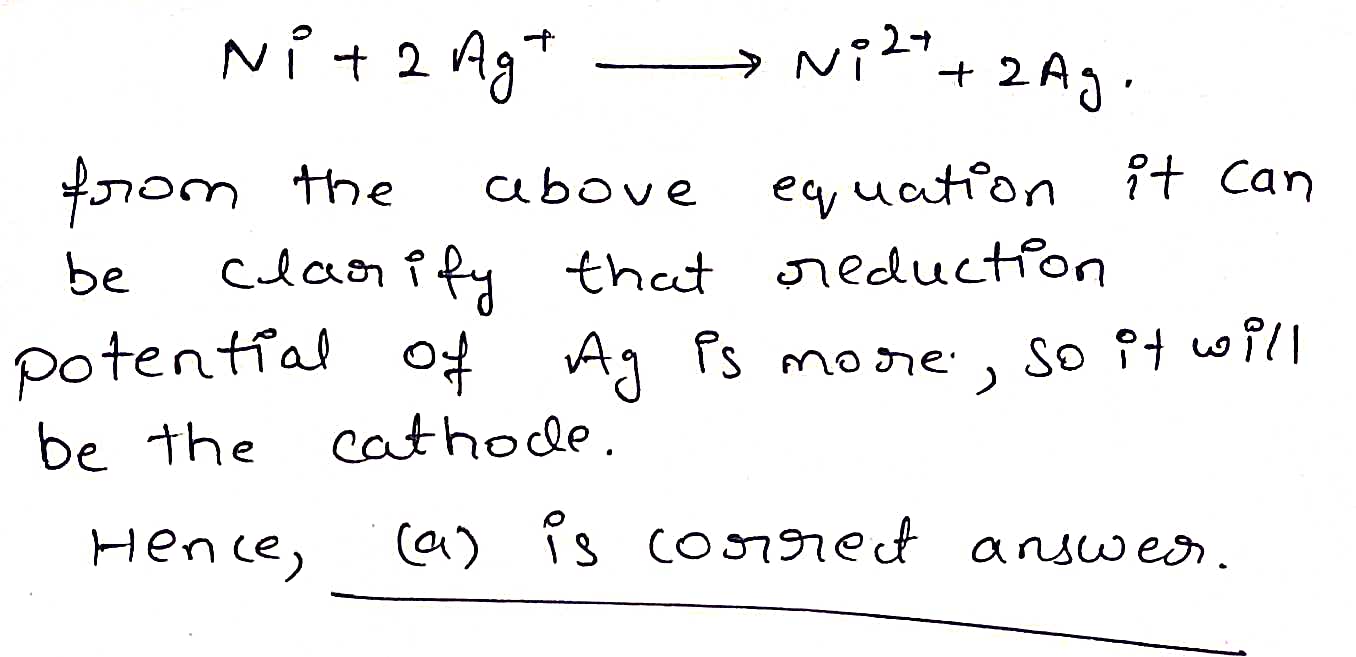 Ni + 2 Ag⁺ ⟶ Ni²⁺ + 2Ag.
from the above equation it can
be clarify that reduction
potential of Ag is more, so it will
be the cathode.
Hence, (a) is correct answer.